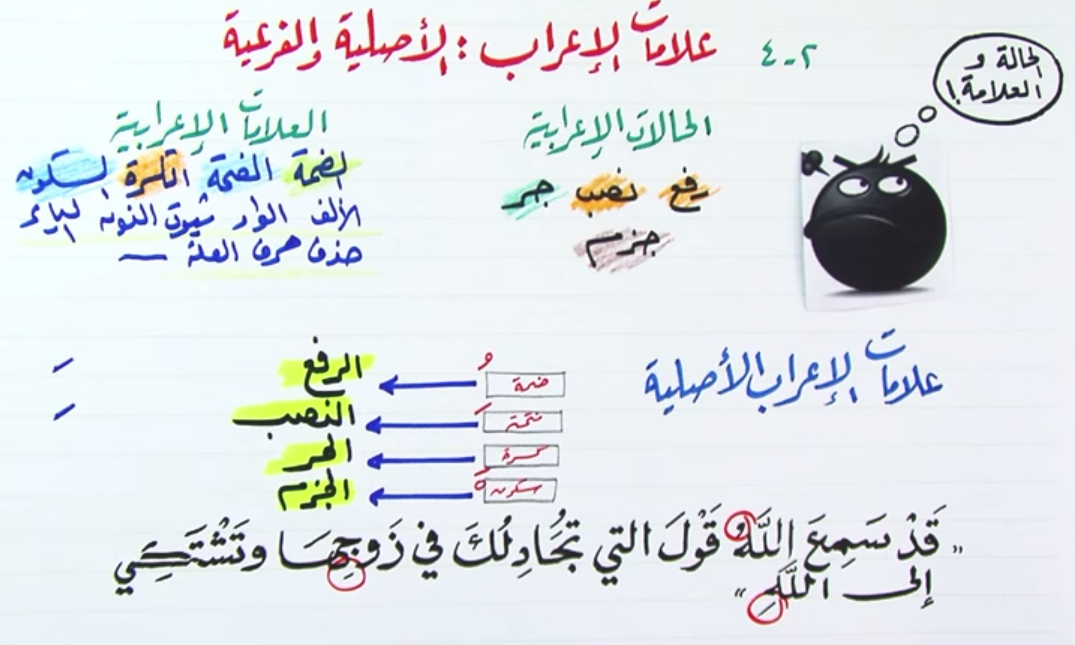 ٢-٤ علامات الإعراب : الأصلية والفرعية
الحالة و
العلامة!
الحالات الإعرابية
رفع نصب جر
جزم
العلامات الإعرابية
الضمة الفتحة الكسرة السكون
الألف الواو ثبوت النون الياء
حذف حرف العلة
علامات الإعراب الأصلية
ضمة الرفع
فتحة النصب
كسرة الجر
سكون الجزم
" قَدْ سَمِعَ اللَّهُ قَوْلَ التي تُجَادِلُكَ في زَوجِهَا وتَشْتَكِي
إلى اللَّهِ "